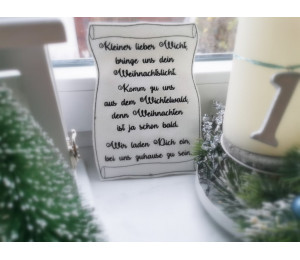 Kleiner lieber Wicht,
bringe uns dein
Weihnachtslicht.
Komm zu uns
aus dem Wichtelwald,
denn Weihnachten
ist ja schon bald.
Wir laden Dich ein,
bei uns zuhause zu sein.
1